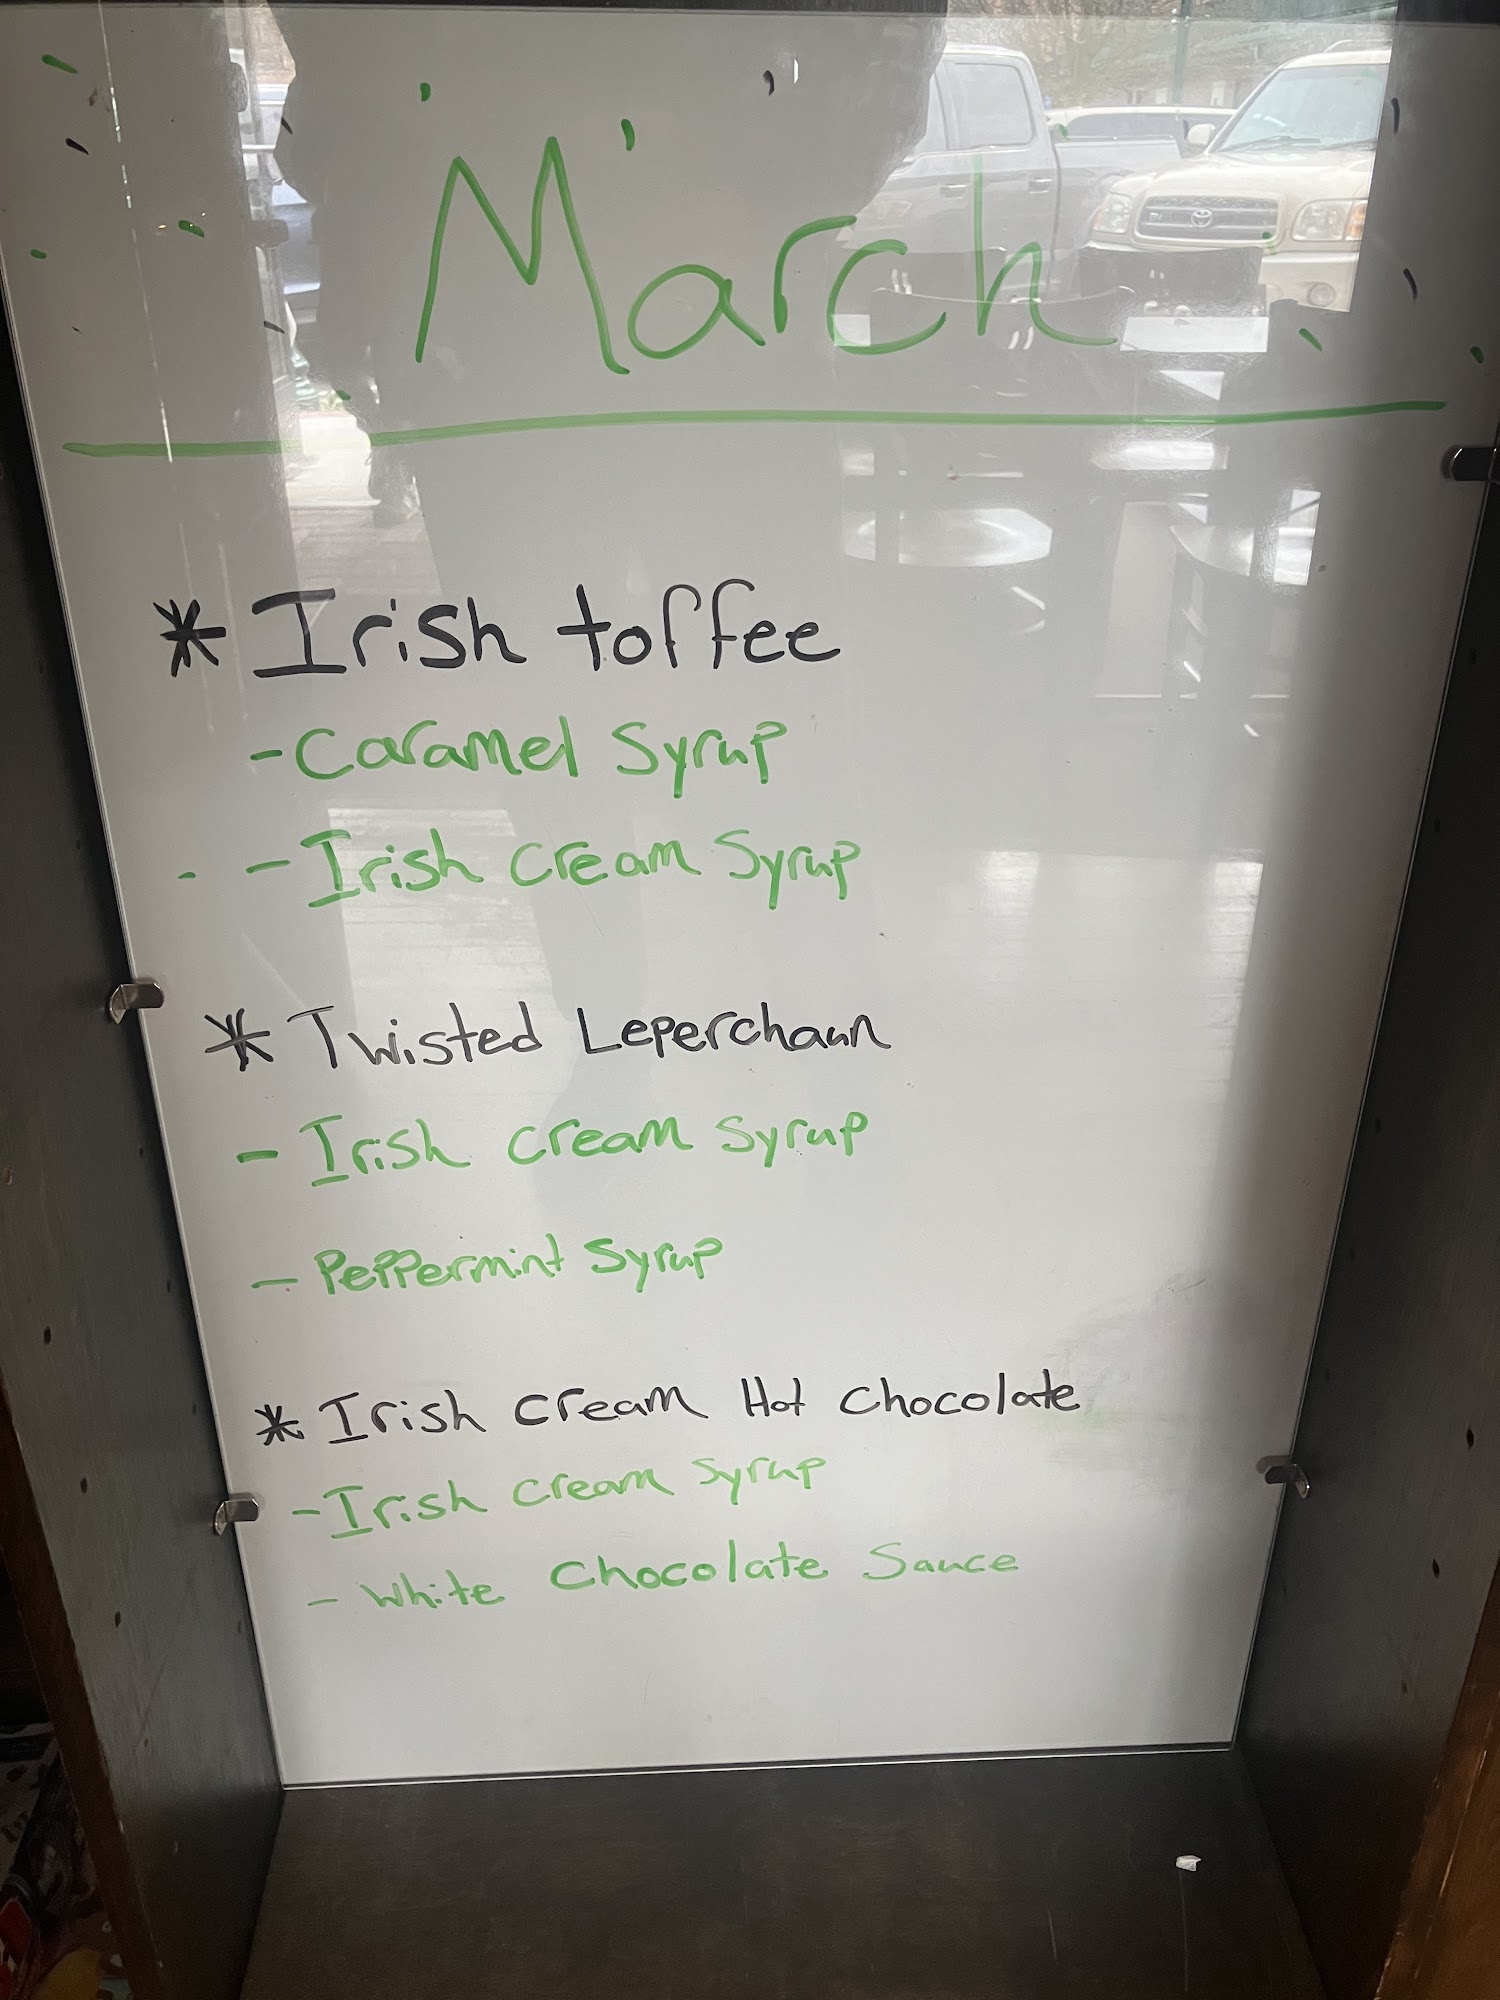 March
* Irish toffee
- Caramel Syrup
- Irish Cream Syrup
* Twisted Leperchaun
- Irish Cream Syrup
- Peppermint Syrup
* Irish Cream Hot Chocolate
- Irish Cream Syrup
- White Chocolate Sauce